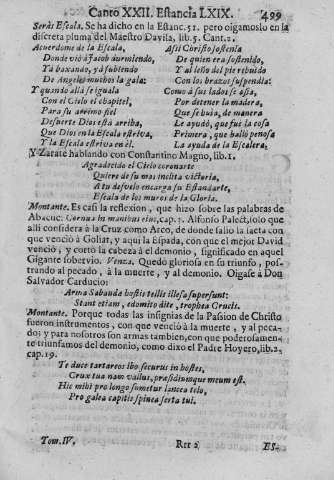 Canto XXII. Estancia LXIX. 499
Serás Escala. Se ha dicho en la Estanc. 51. pero oigamoslo en la
discreta pluma del Maestro Davila, lib. 5. Cant. 2.
Acuerdome de la Escala,
Donde vió à Jacob durmiendo,
Ya baxando, y à subiendo
De Angeles muchos la gala:
Y quando allà se iguala
Con el Cielo el chapitel,
Para su arrimo fiel
De suerte Dios està arriba,
Que Dios en la Escala estriva,
Y la Escala estriva en èl.
Assi Christo sostenia
De quien era sostenido,
Y al leño del pie rebatido
Con los brazos suspendia:
Como à sus lados se asia,
Por detener la madera,
Que se baja, de manera
Le ayudó, que fuè la cosa
Primera, que hallò penosa
La ayuda de la Escalera.
Y Zarate hablando con Constantino Magno, lib. 1.
Agradecido el Cielo coronarte
Quiere de su mas inclita victoria,
A tu desvelo encarga su Estandarte,
Escala de los muros de la Gloria.
Montante. Es casi la reflexion, que hizo sobre las palabras de
Abacuc: Cornua in manibus eius, cap. 3. Alfonso Paleot, solo que
alli considera à la Cruz como Arco, de donde saliò la saeta con
que venciò à Goliat, y aqui la Espada, con que el mejor David
venciò, y cortò la cabeza à el demonio, significado en aquel
Gigante sobervio. Venza. Quedò gloriosa en su triunfo, pos-
trando al pecado, à la muerte, y al demonio. Oigase à Don
Salvador Carducio:
Arma Sabauda hostis tellis illesa supersunt:
Stant etiam, edomito dite, trophea Crucis.
Montante. Porque todas las insignias de la Passion de Christo
fueron instrumentos, con que venciò à la muerte, y al peca-
do; y para nosotros son armas tambien, con que poderosamen-
te triunfamos del demonio, como dixo el Padre Hoyero, lib. 2.
cap. 19.
Te duce tartareos ibo securus in hostes,
Crux tua nam vallus, præsidiumque meum est.
Hic mihi pro longo sumetur lancea telo,
Pro galea capitis spinea serta tui.
Tom. IV. Rrr 2 ES-